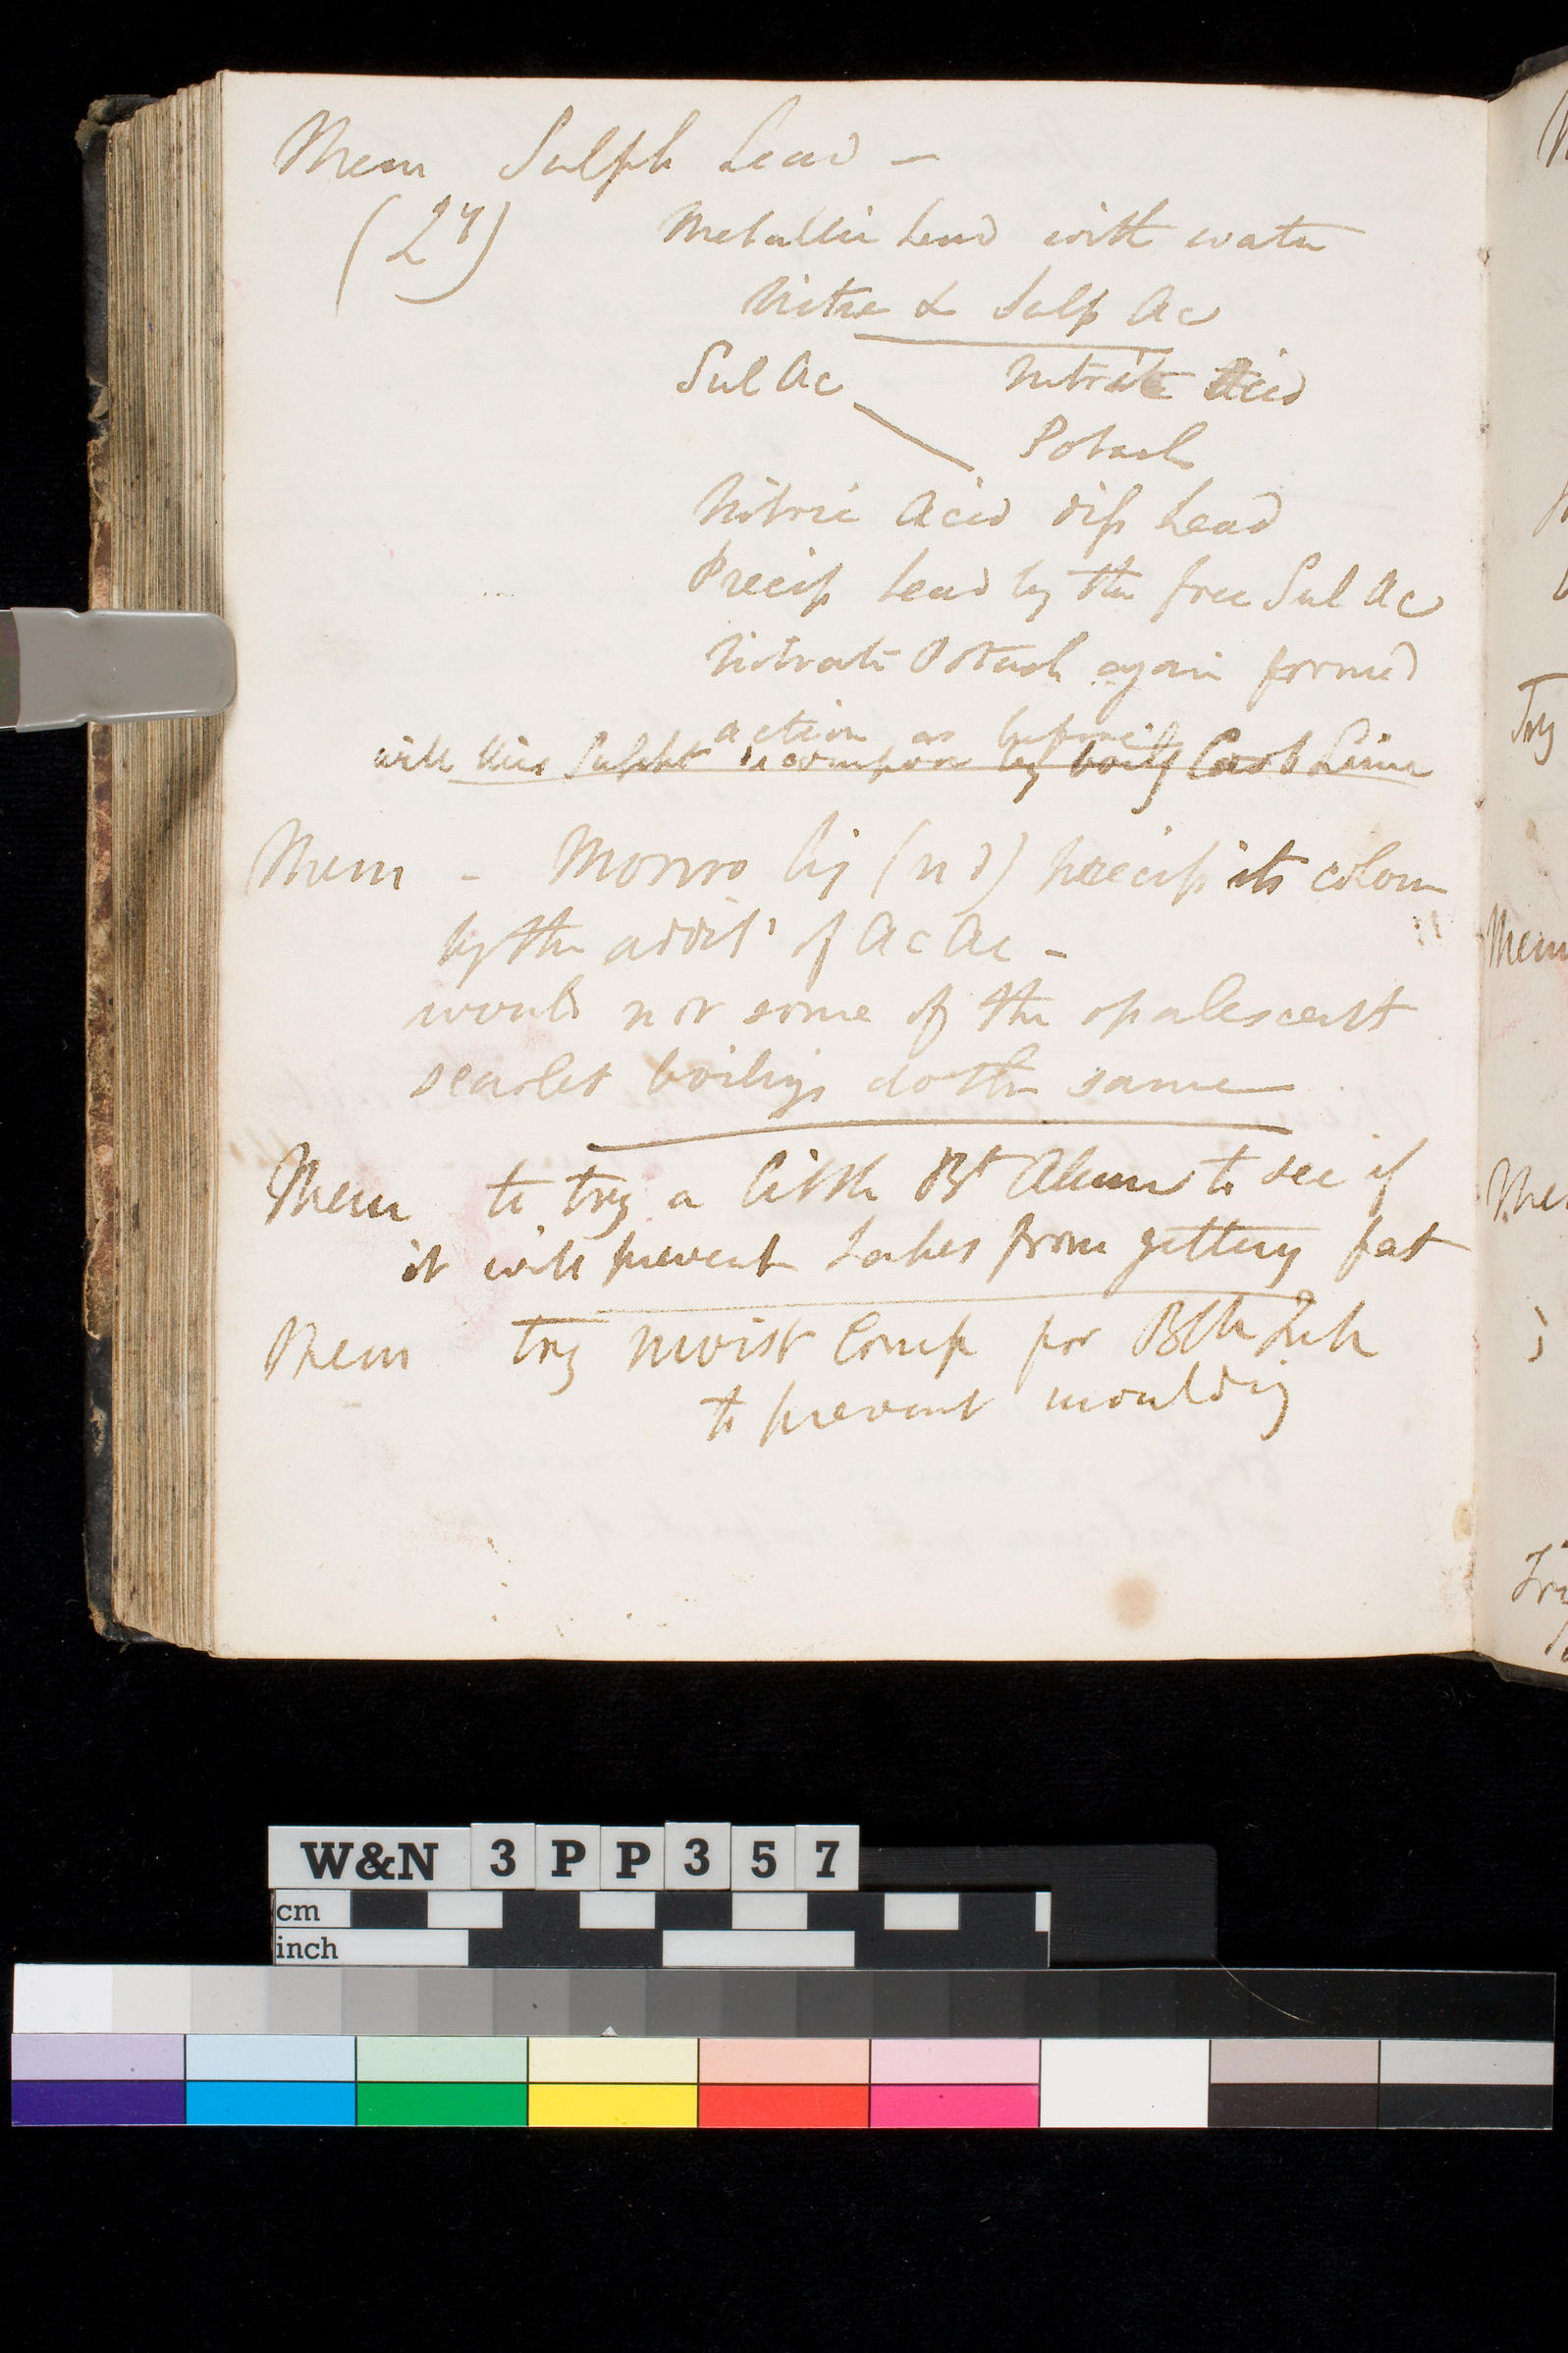 Mem Sulph Lead —
Metallic Lead with water
Nitre & Sulp Ac
Sul Ac Nitric Acid
Potash
Nitric Acid diss Lead
Precip Lead by the free Sul Ac
Nitrate Potash again formed
action as before
will this Sulpht decompose by boilg Carb Lime
Mem - Monro liq precip its colour
by the addit' of Ac Ac —
would not some of the opalescent
scarlet boilings do the same
Mem to try a little Bt Alum to see if
it will prevent Lakes from getting fat
Mem try moist Comp for Blk Ink
to prevent moulding
Try
Mem
Try
W&N 3PP357
cm
inch